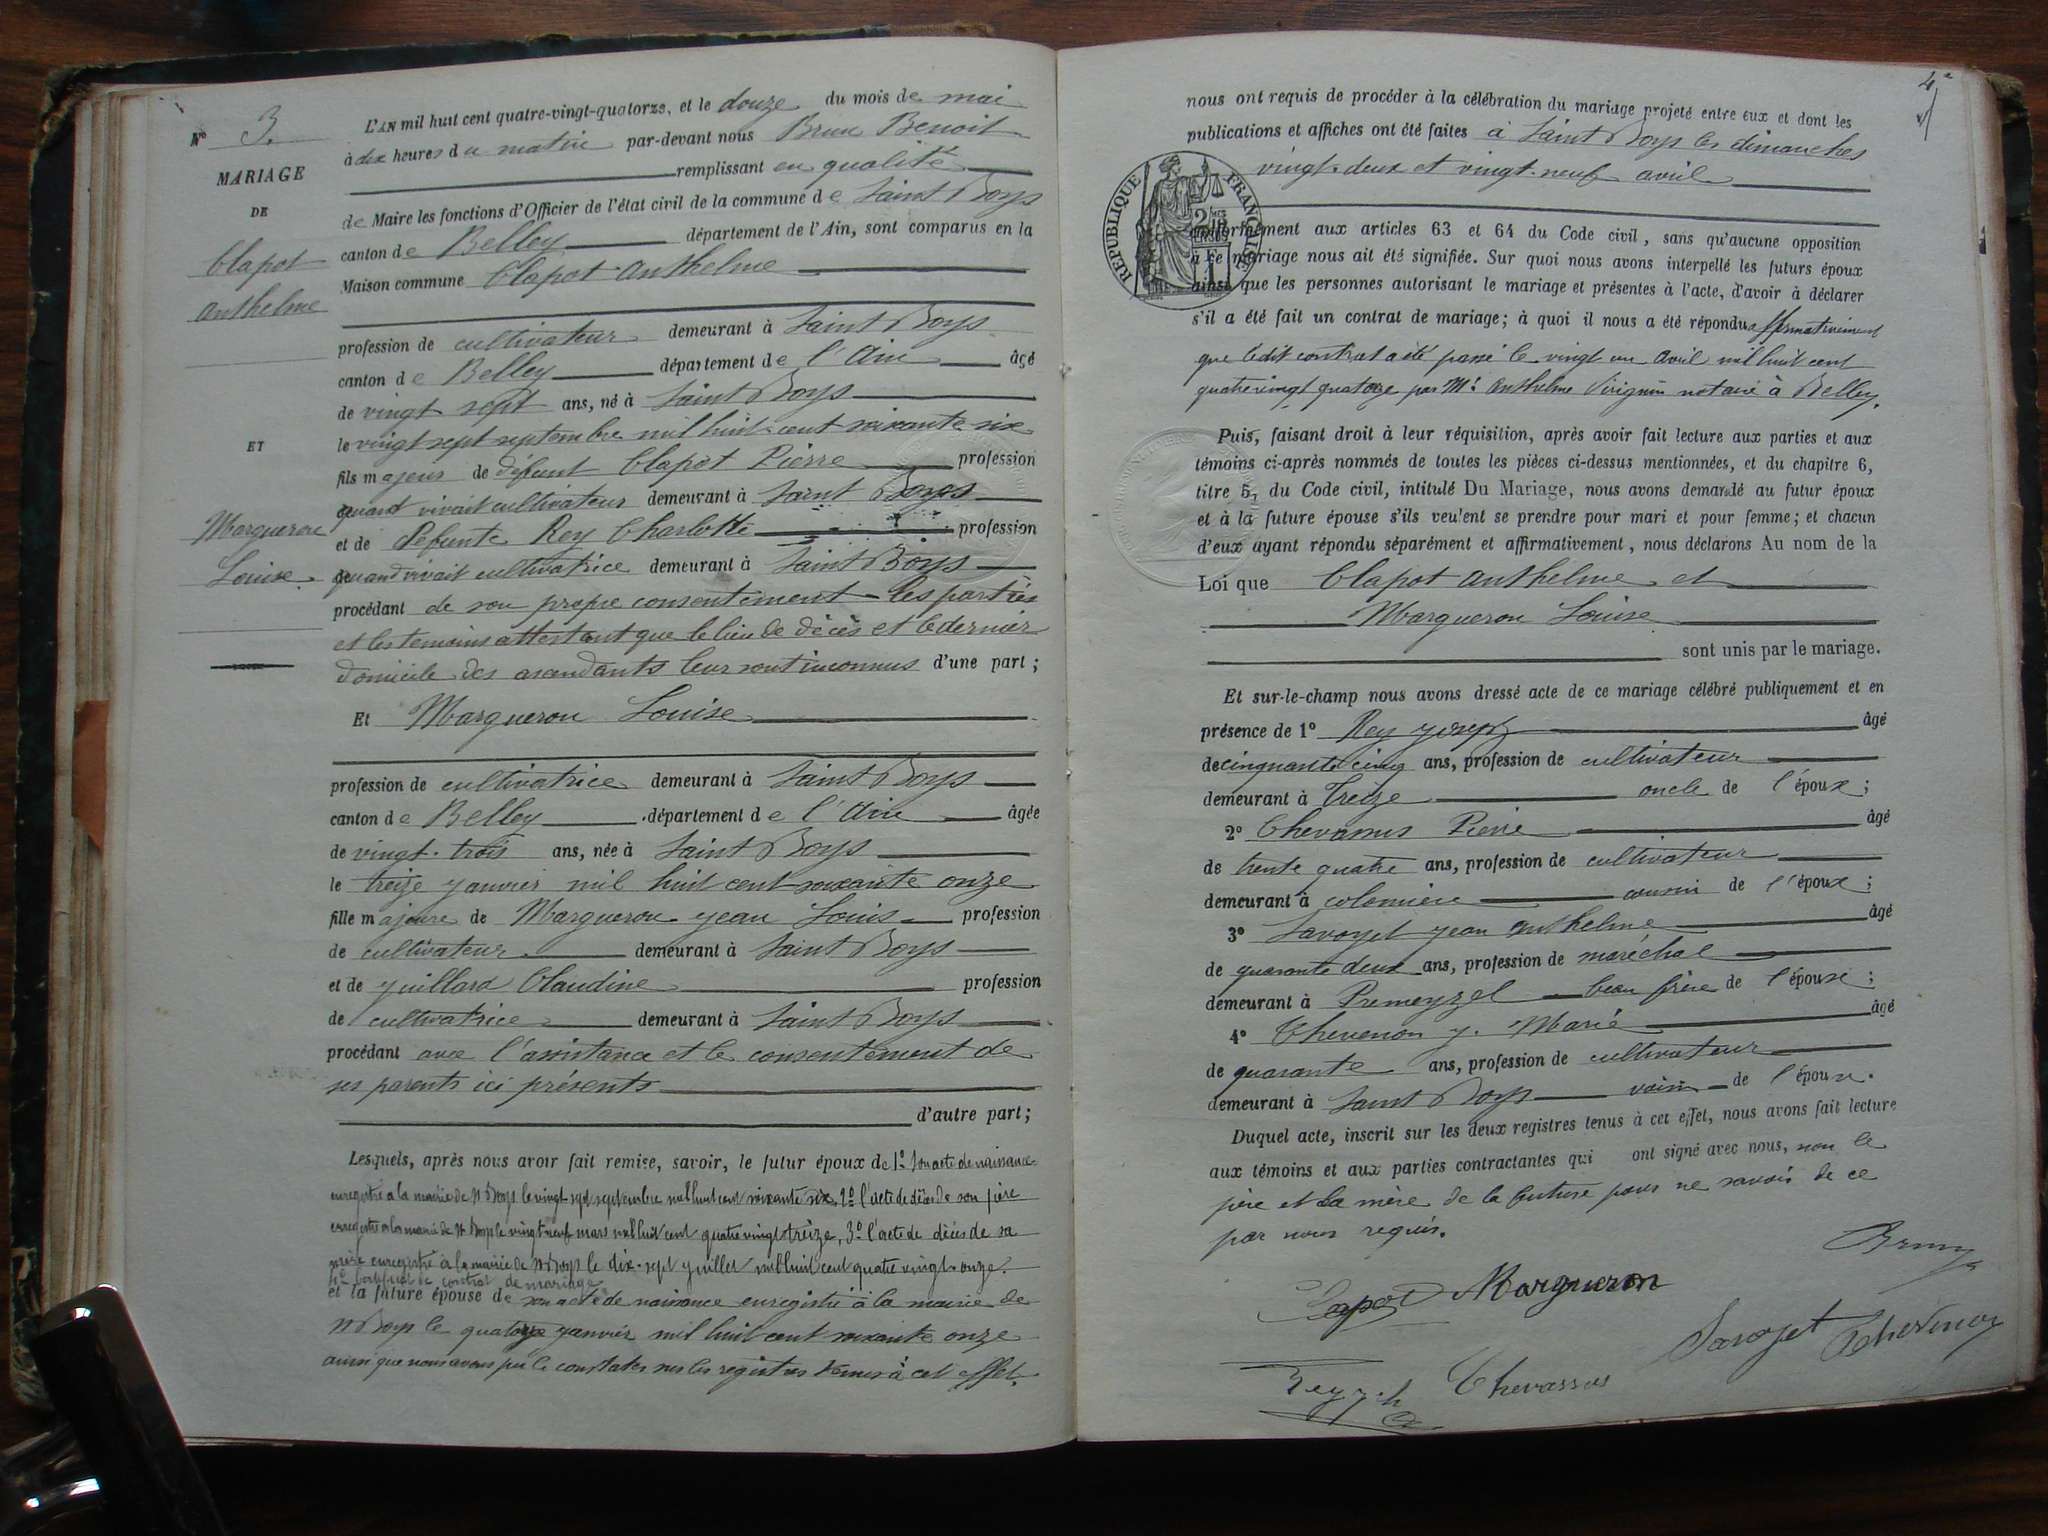 N° 3.
MARIAGE
DE
Clapot
Anthelme
ET
Margueron
Louise
L'AN mil huit cent quatre-vingt-quatorze, et le douze du mois de mai
à dix heures du matin par-devant nous Brun Benoit
remplissant en qualité
de Maire les fonctions d'Officier de l'état civil de la commune de Saint Boys
canton de Belley département de l'Ain, sont comparus en la
Maison commune Clapot Anthelme
profession de cultivateur demeurant à Saint Boys
canton de Belley département de l'Ain âgé
de vingt sept ans, né à Saint Boys
le vingt sept septembre mil huit cent soixante six
fils majeur de défunt Clapot Pierre profession
quand vivait cultivateur demeurant à Saint Boys
et de défunte Rey Charlotte profession
quand vivait cultivatrice demeurant à Saint Boys
procédant de son propre consentement les parties
et les temoins attestant que le lieu de décès et le dernier
domicile des ascendants leur sont inconnus d'une part ;
Et Margueron Louise
profession de cultivatrice demeurant à Saint Boys
canton de Belley département de l'Ain âgée
de vingt-trois ans, née à Saint Boys
le treize janvier mil huit cent soixante onze
fille majeure de Margueron jean Louis profession
de cultivateur demeurant à Saint Boys
et de juillard Claudine profession
de cultivatrice demeurant à Saint Boys
procédant avec l'assistance et le consentement de
ses parents ici présents
d'autre part ;
Lesquels, après nous avoir fait remise, savoir, le futur époux de 1° son acte de naissance
enregistré a la mairie de St Boys le vingt sept septembre mil huit cent soixante six, 2° l'acte de décès de son père
enregistré a la mairie de St Boys le vingt neuf mars mil huit cent quatre vingt treize, 3° l'acte de décès de sa
mère enregistré à la mairie de St Boys le dix-sept juillet mil huit cent quatre vingt onze
4° certificat de contrat de mariage
et la future épouse de son acte de naissance enregistré à la mairie de
St Boys le quatorze janvier mil huit cent soixante onze
ainsi que nous avons pu le constater sur les registres tenus à cet effet.
4e
nous ont requis de procéder à la célébration du mariage projeté entre eux et dont les
publications et affiches ont été faites à Saint Boys les dimanches
vingt-deux et vingt-neuf avril
RÉPUBLIQUE FRANÇAISE
conformément aux articles 63 et 64 du Code civil, sans qu'aucune opposition
à ce mariage nous ait été signifiée. Sur quoi nous avons interpellé les futurs époux
ainsi que les personnes autorisant le mariage et présentes à l'acte, d'avoir à déclarer
s'il a été fait un contrat de mariage ; à quoi il nous a été répondu affirmativement
que ledit contrat a été passé le vingt un avril mil huit cent
quatre vingt quatorze par Me Anthelme Virignin notaire à Belley.
Puis, faisant droit à leur réquisition, après avoir fait lecture aux parties et aux
témoins ci-après nommés de toutes les pièces ci-dessus mentionnées, et du chapitre 6,
titre 5, du Code civil, intitulé Du Mariage, nous avons demandé au futur époux
et à la future épouse s'ils veulent se prendre pour mari et pour femme ; et chacun
d'eux ayant répondu séparément et affirmativement, nous déclarons Au nom de la
Loi que Clapot Anthelme et
Margueron Louise
sont unis par le mariage.
Et sur-le-champ nous avons dressé acte de ce mariage célébré publiquement et en
présence de 1° Rey joseph âgé
de cinquante cinq ans, profession de cultivateur
demeurant à Treize oncle de l'époux ;
2° Chevassus Pierre âgé
de trente quatre ans, profession de cultivateur
demeurant à colomieu cousin de l'époux ;
3° Savoyet jean anthelme âgé
de quarante deux ans, profession de maréchal
demeurant à Premeyzel beau frère de l'épouse ;
4° Thevenon j. Marie âgé
de quarante ans, profession de cultivateur
demeurant à Saint Boys voisin de l'époux.
Duquel acte, inscrit sur les deux registres tenus à cet effet, nous avons fait lecture
aux témoins et aux parties contractantes qui ont signé avec nous, non le
père et la mère de la future pour ne savoir de ce
par nous requis.
Brun
Clapot Margueron
Savoyet Thevenon
Chevassus